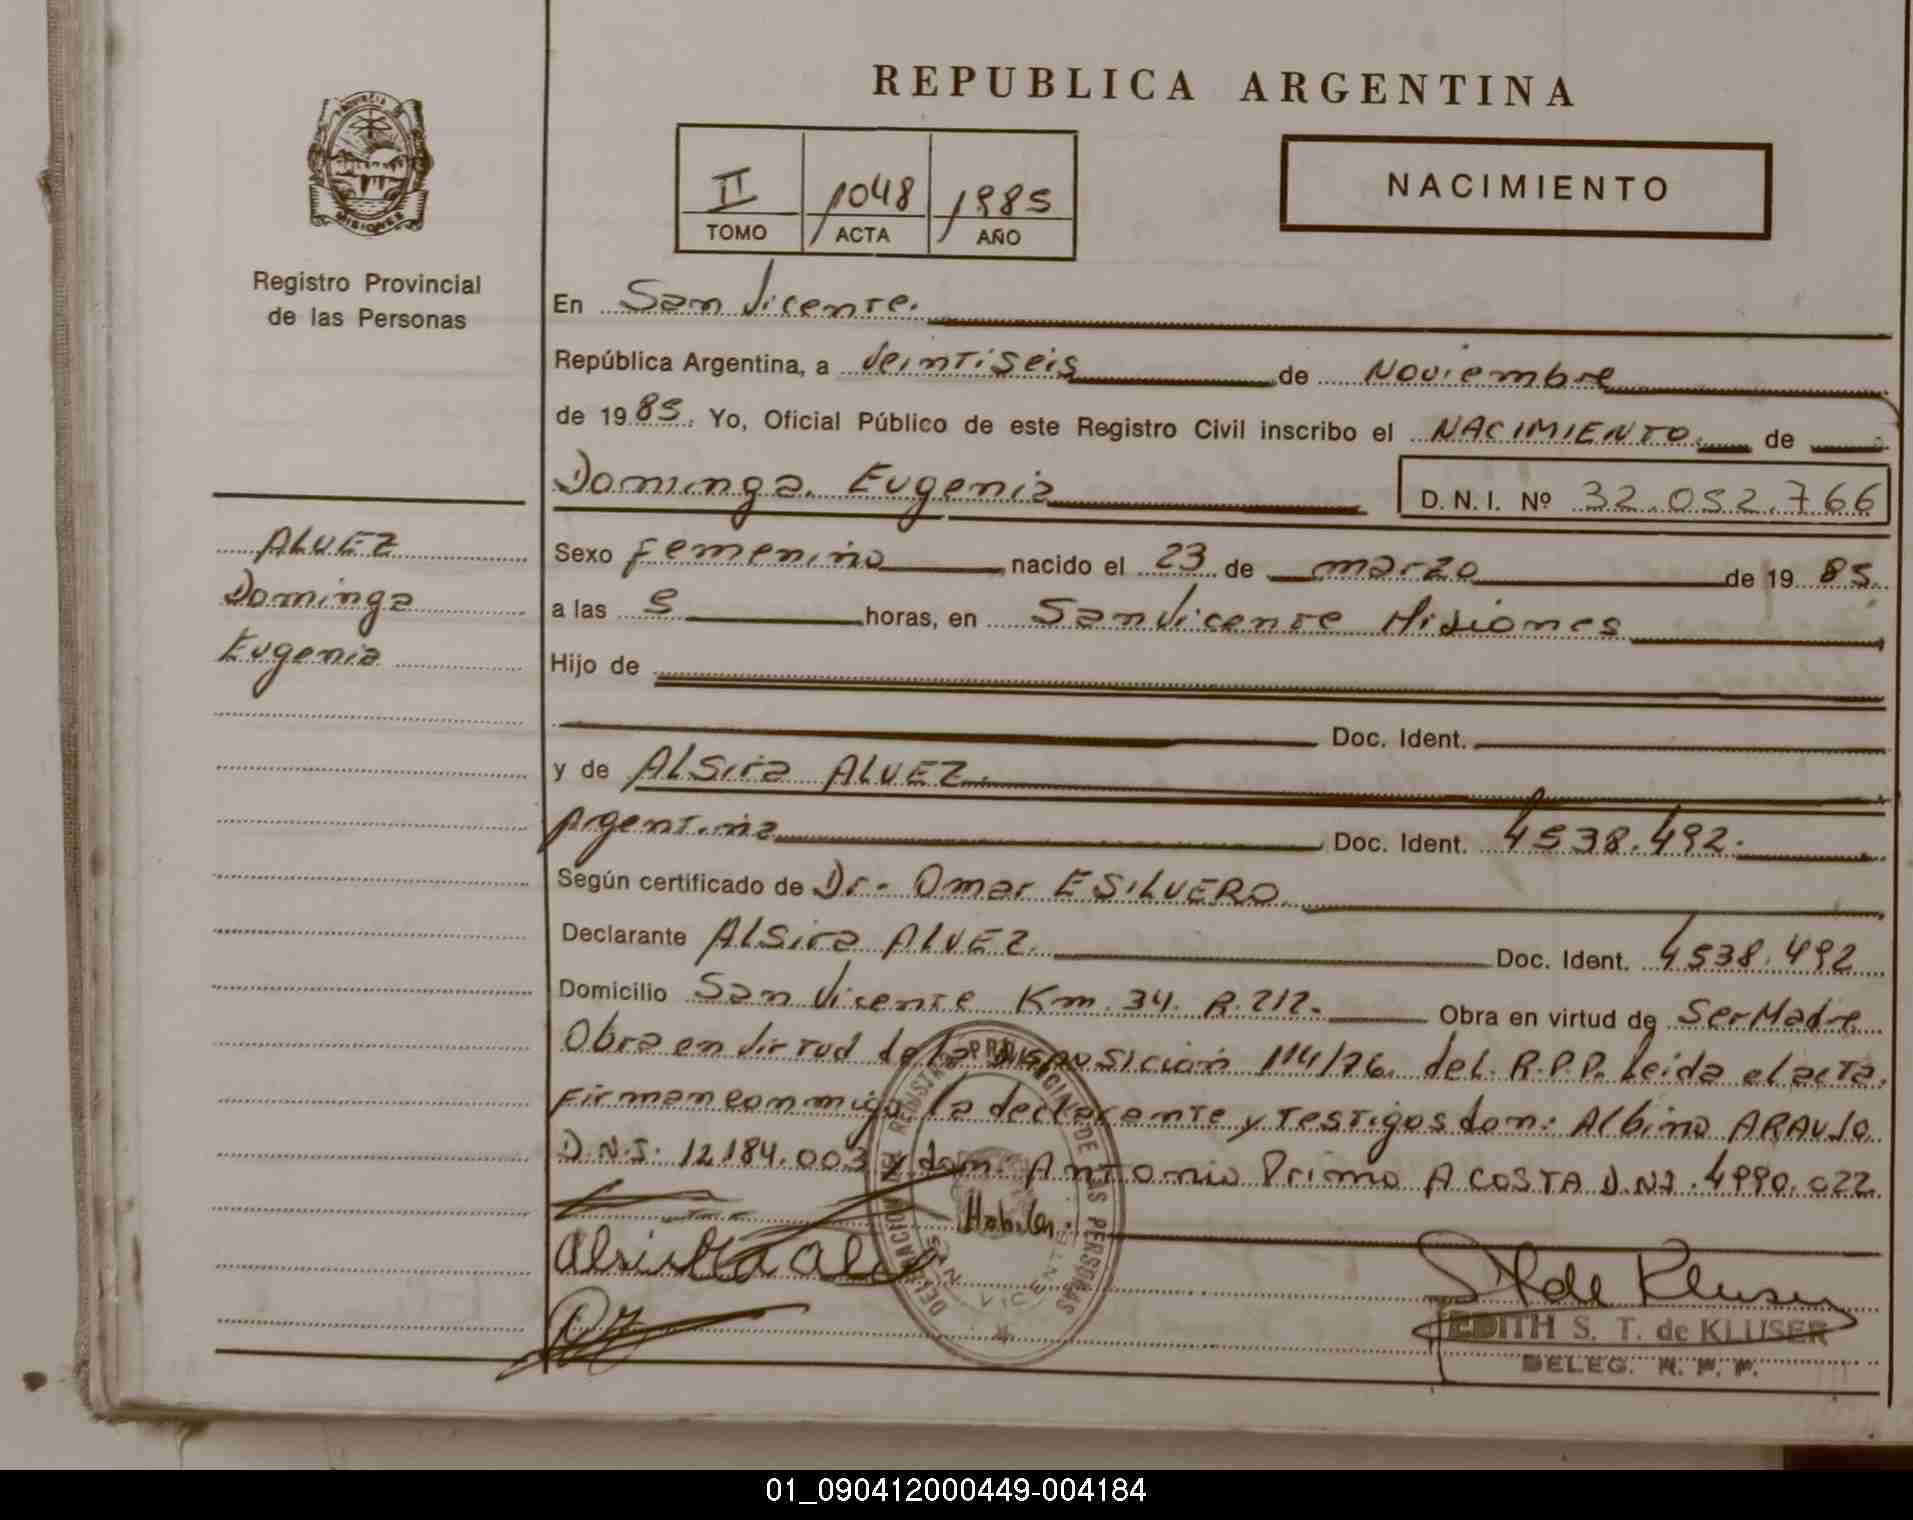 REPUBLICA ARGENTINA
II 1048 1985
TOMO ACTA AÑO
NACIMIENTO
PROVINCIA DE
MISIONES
Registro Provincial
de las Personas
En San Vicente.
República Argentina, a Veintiseis de Noviembre
de 1985. Yo, Oficial Público de este Registro Civil inscribo el NACIMIENTO. de
Dominga. Eugenia D. N. I. Nº 32.052.766
ALVEZ
Dominga
Eugenia
Sexo Femenino nacido el 23 de marzo de 1985.
a las 5 horas, en San Vicente Misiones
Hijo de
Doc. Ident.
y de Alsira ALVEZ.
Argentina Doc. Ident. 4538.492.
Según certificado de Dr. Omar ESILVERO.
Declarante Alsira ALVEZ. Doc. Ident. 4538.492
Domicilio San Vicente Km. 34. R.212. Obra en virtud de Ser Madre
Obra en virtud de la disposición 114/76. del. R.P.P. Leida el acta.
Firman conmigo la declarante y testigos don: Albino ARAUJO
D.N.I. 12184.003 y don. Antonio Primo ACOSTA D.N.I. 4990.022
Habiles.
DELEGACION DEL REGISTRO PROVINCIAL DE LAS PERSONAS
SAN VICENTE
EDITH S. T. de KLUSER
DELEG. R. P. P.
01_090412000449-004184